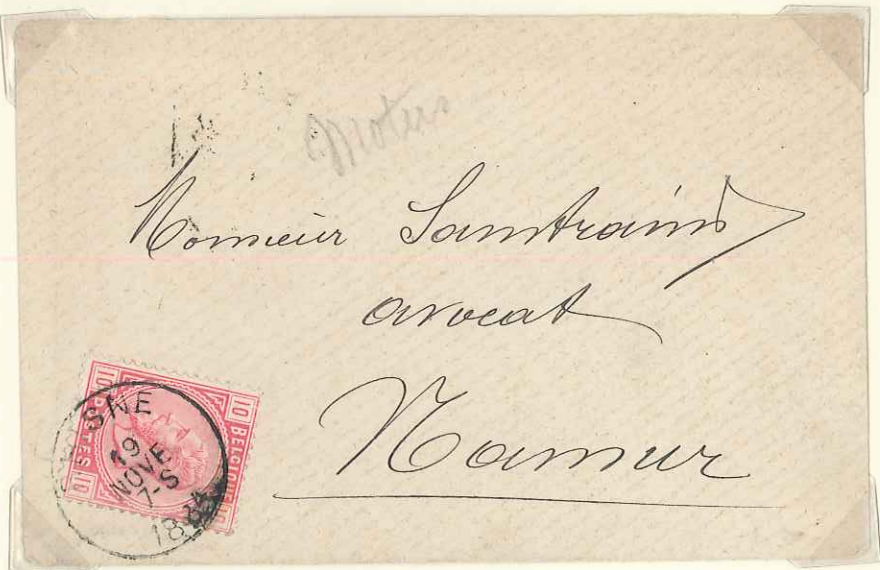 Monsieur Saintraint
avocat
Namur
10 BELGIQUE 10
10 POSTES 10
SNE
19
NOVE
7-S